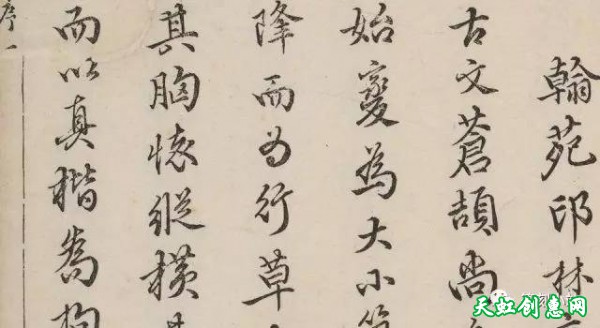 翰苑印林
古文蒼頡尚
始變為大小
降而為行草
其胸懷縱橫
而以真楷為拘
序一
天虹创意网